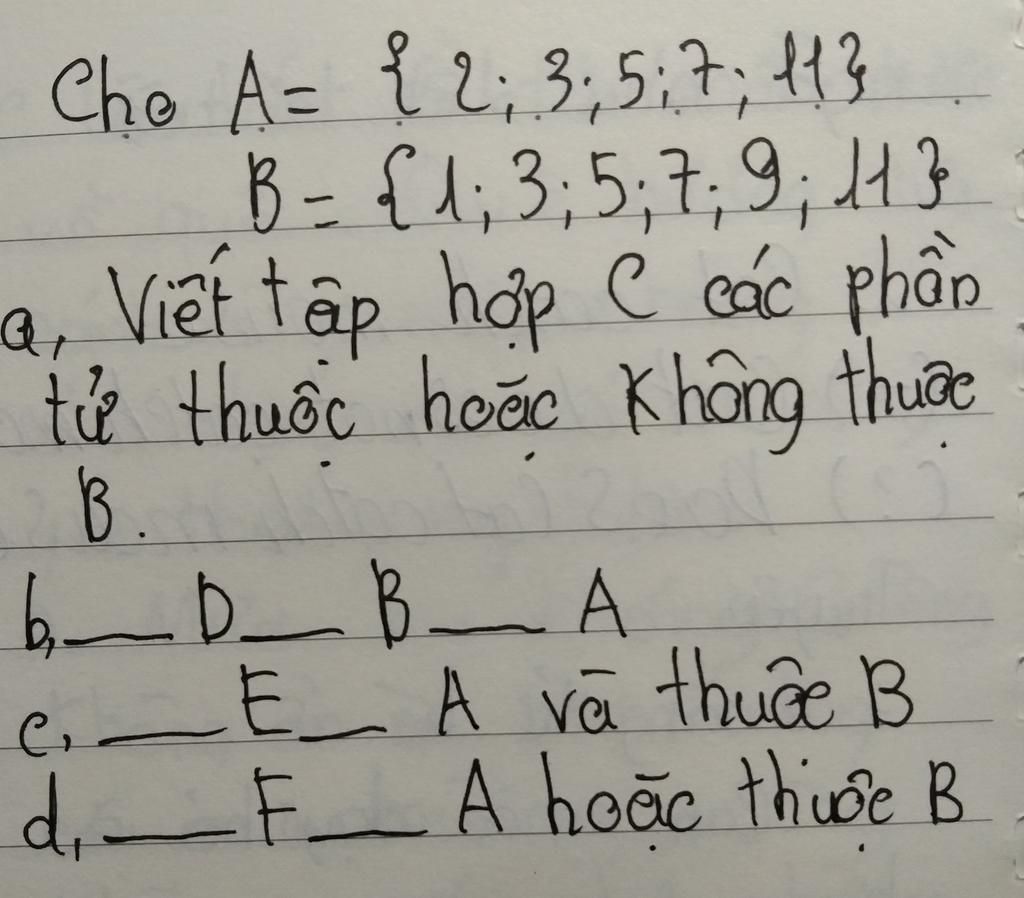 Cho A = { 2; 3; 5; 7; 11}
B = {1; 3; 5; 7; 9; 11}
a, Viết tập hợp C các phần
tử thuộc hoặc không thuộc
B.
b, __ D __ B __ A
c, __ E __ A và thuộc B
d, __ F __ A hoặc thuộc B